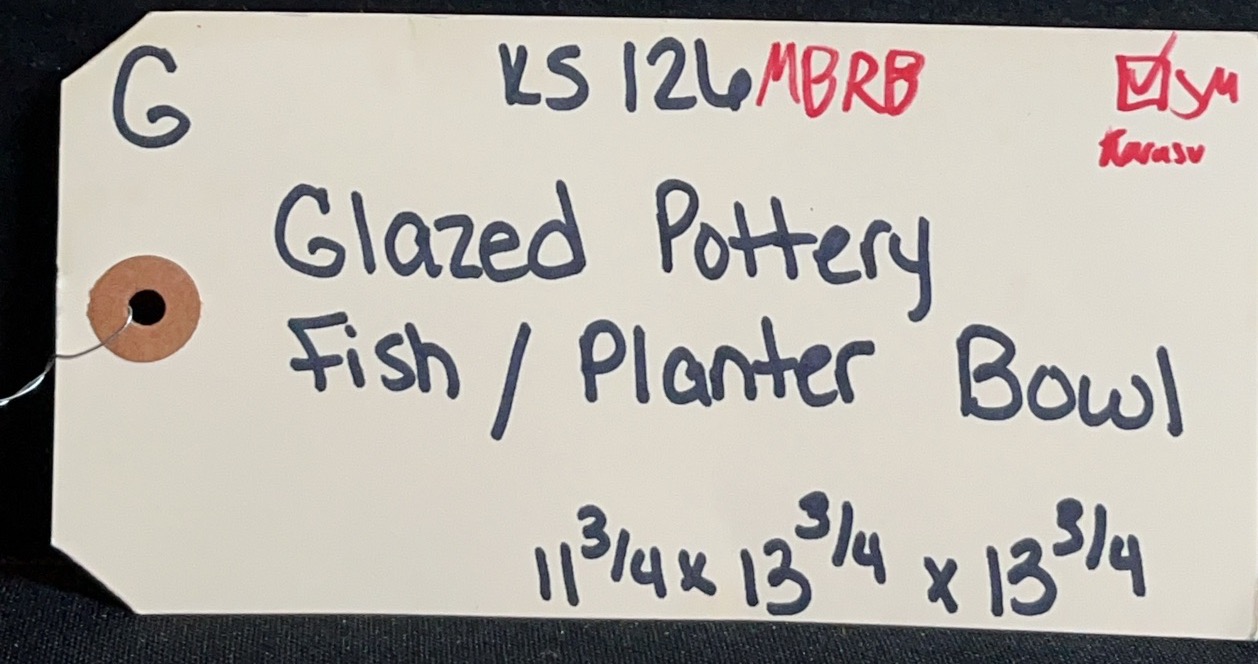 G KS 126 MBRB ☑ SM
Karasu
Glazed Pottery
Fish / Planter Bowl
11 3/4 x 13 3/4 x 13 3/4